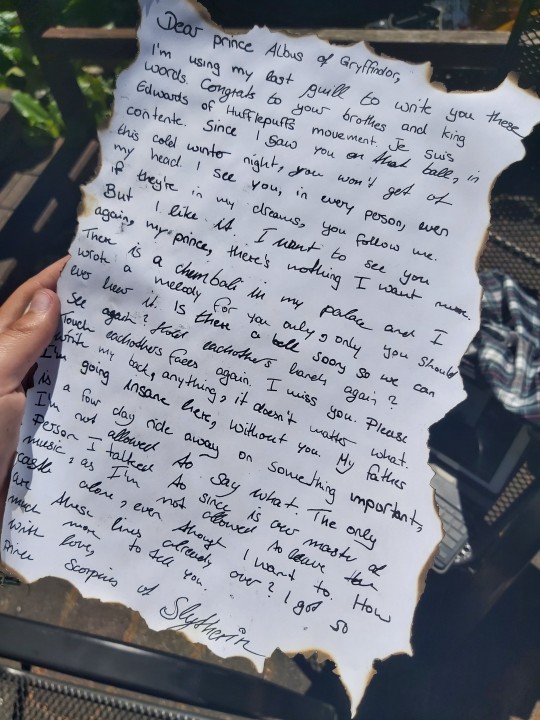 Dear prince Albus of Gryffindor,
I'm using my last quill to write you these
words. Congrats to your brothes and king
Edwards of Hufflepuffs movement. Je suis
contente. Since I saw you on that ball, in
this cold winto night, you won't get of
my head. I see you, in every person, even
if they're in my dreams, you follow me.
But I like it. I want to see you
again, my prince, there's nothing I want more.
There is a chembali in my palace and I
wrote a melody for you only, only you should
ever hew it. Is there a ball soon so we can
see again? Hold eachothers hands again?
Touch eachothers faces again. I miss you. Please
write my back, anything, it doesn't matter what.
I'm going insane here, without you. My father
is a few day ride away on something important,
I'm not allowed to say what. The only
person I talked to since is our master of
music, as I'm not allowed to leave the
castle alone, even though I want to. How
are these lines already over? I got so
much more to tell you.
With love,
Prince Scorpius of Slytherin